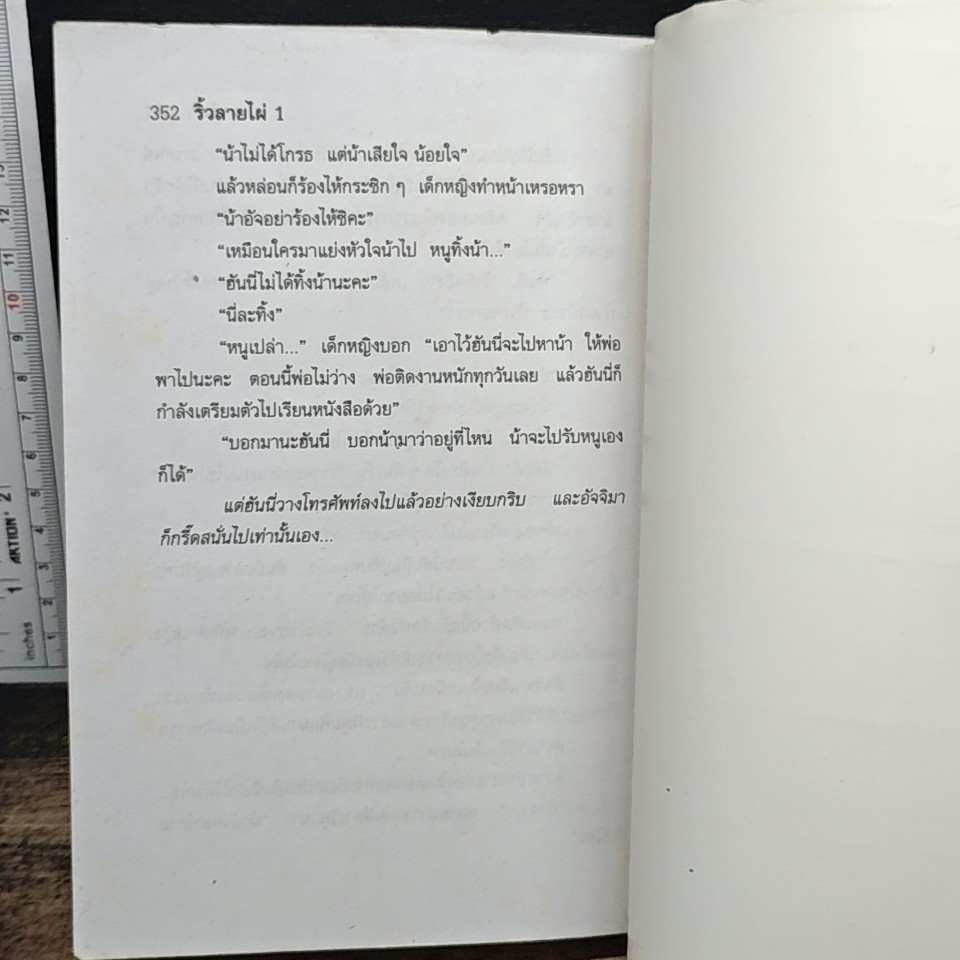 352 ริ้วลายไผ่ 1
“น้าไม่ได้โกรธ แต่น้าเสียใจ น้อยใจ”
แล้วหล่อนก็ร้องไห้กระซิก ๆ เด็กหญิงทำหน้าเหรอหรา
“น้าอัจอย่าร้องไห้ซิคะ”
“เหมือนใครมาแย่งหัวใจน้าไป หนูทิ้งน้า...”
“ฮันนี่ไม่ได้ทิ้งน้านะคะ”
“นี่ละทิ้ง”
“หนูเปล่า...” เด็กหญิงบอก “เอาไว้ฮันนี่จะไปหาน้า ให้พ่อ
พาไปนะคะ ตอนนี้พ่อไม่ว่าง พ่อติดงานหนักทุกวันเลย แล้วฮันนี่ก็
กำลังเตรียมตัวไปเรียนหนังสือด้วย”
“บอกมานะฮันนี่ บอกน้ามาว่าอยู่ที่ไหน น้าจะไปรับหนูเอง
ก็ได้”
แต่ฮันนี่วางโทรศัพท์ลงไปแล้วอย่างเงียบกริบ และอัจจิมา
ก็กรี๊ดสนั่นไปเท่านั้นเอง...
inches
1 2 3 4 5 6 7 8 9 10 11 12 13
1 AKTION 2